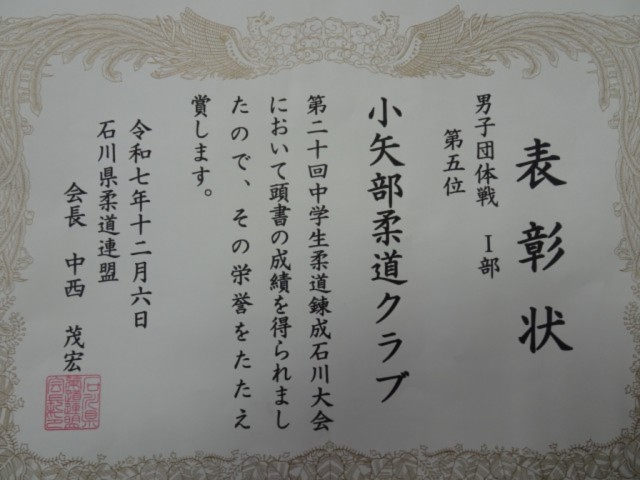 表彰状
男子団体戦 Ⅰ部
第五位
小矢部柔道クラブ
第二十回中学生柔道錬成石川大会
において頭書の成績を得られまし
たので、その栄誉をたたえ
賞します。
令和七年十二月六日
石川県柔道連盟
会長 中西 茂宏